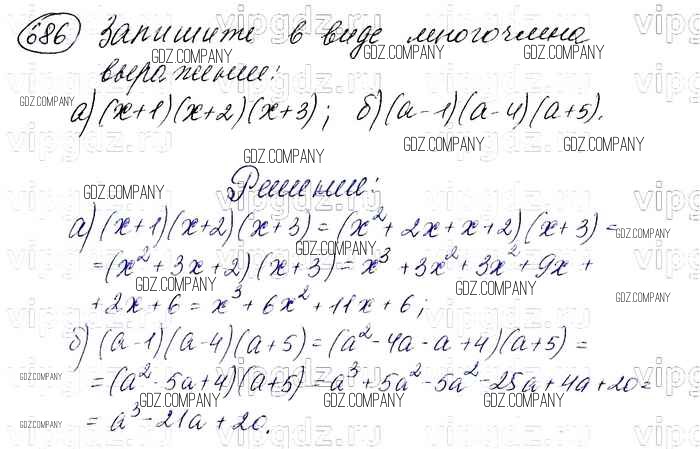 686 Запишите в виде многочлена
выражение:
а) (x+1)(x+2)(x+3); б) (a-1)(a-4)(a+5).
Решение:
а) (x+1)(x+2)(x+3) = (x²+2x+x+2)(x+3) =
= (x²+3x+2)(x+3) = x³+3x²+3x²+9x+
+2x+6 = x³+6x²+11x+6;
б) (a-1)(a-4)(a+5) = (a²-4a-a+4)(a+5) =
= (a²-5a+4)(a+5) = a³+5a²-5a²-25a+4a+20 =
= a³-21a+20.